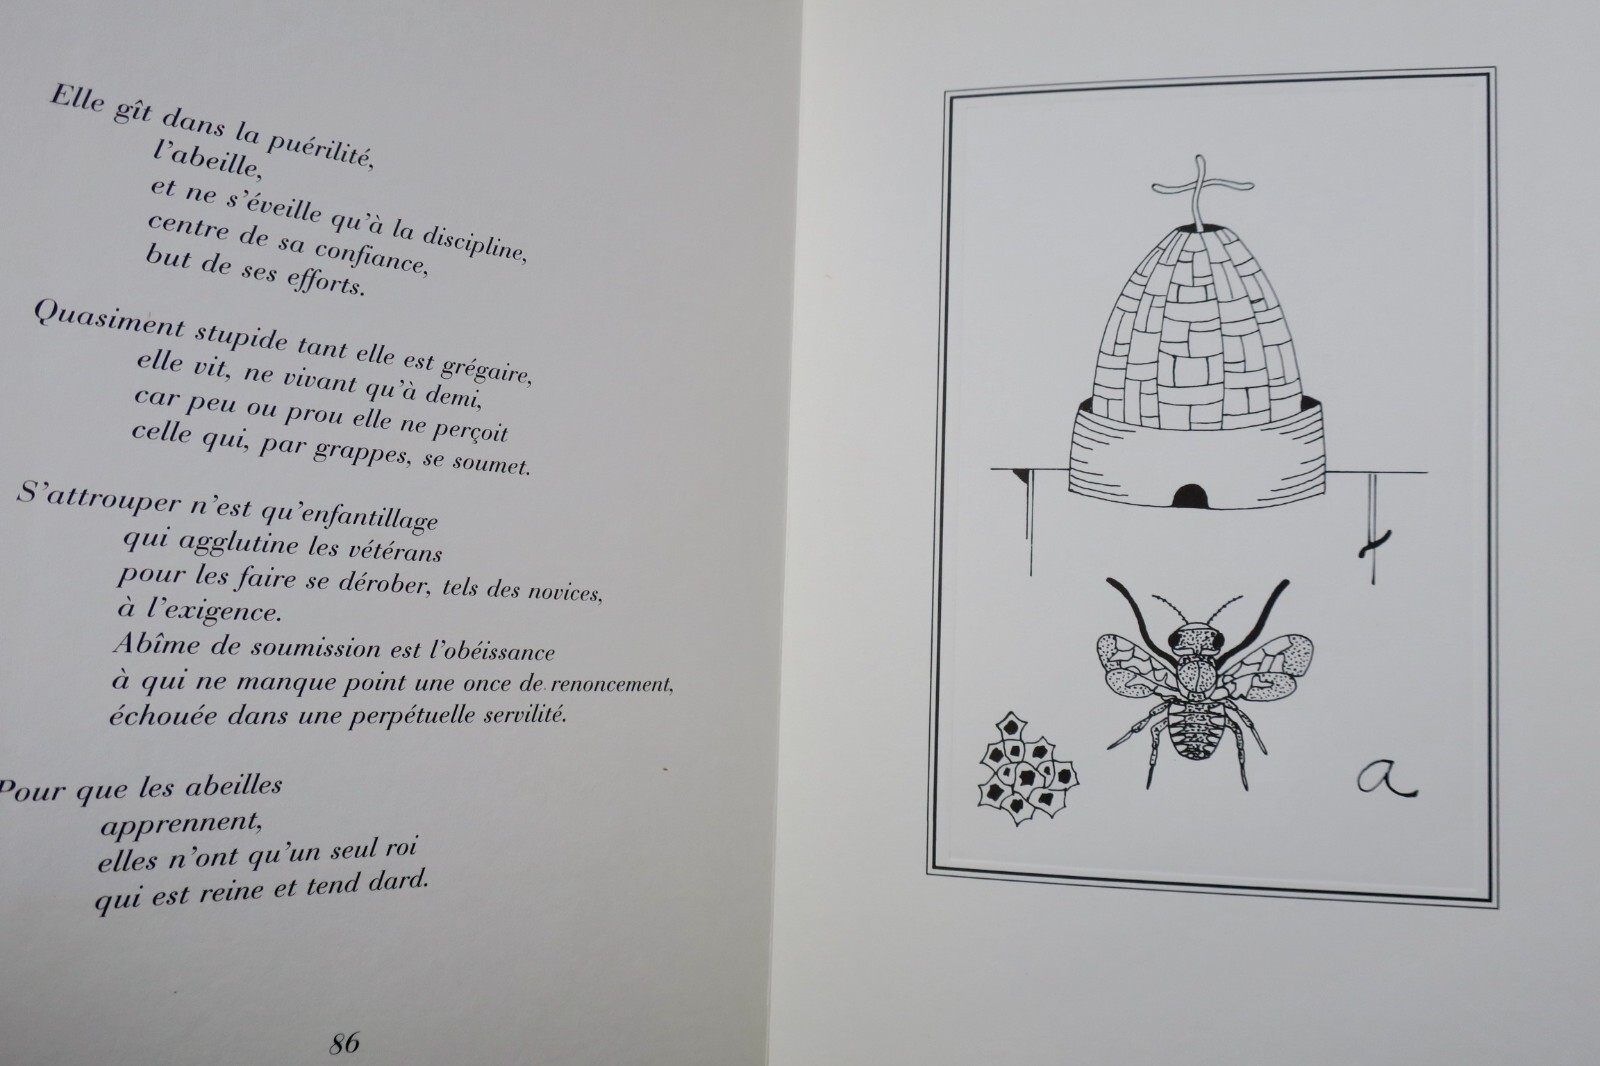 Elle gît dans la puérilité,
l'abeille,
et ne s'éveille qu'à la discipline,
centre de sa confiance,
but de ses efforts.
Quasiment stupide tant elle est grégaire,
elle vit, ne vivant qu'à demi,
car peu ou prou elle ne perçoit
celle qui, par grappes, se soumet.
S'attrouper n'est qu'enfantillage
qui agglutine les vétérans
pour les faire se dérober, tels des novices,
à l'exigence.
Abîme de soumission est l'obéissance
à qui ne manque point une once de renoncement,
échouée dans une perpétuelle servilité.
Pour que les abeilles
apprennent,
elles n'ont qu'un seul roi
qui est reine et tend dard.
86
a